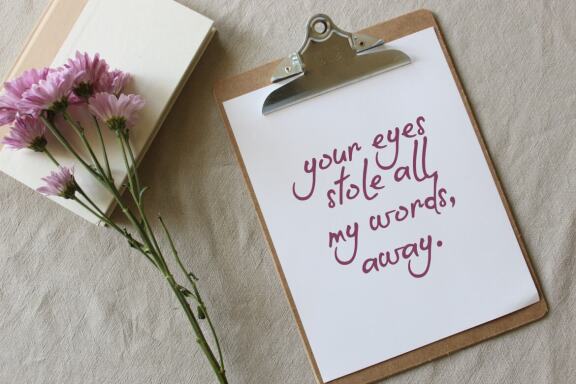 your eyes
stole all
my words,
away.